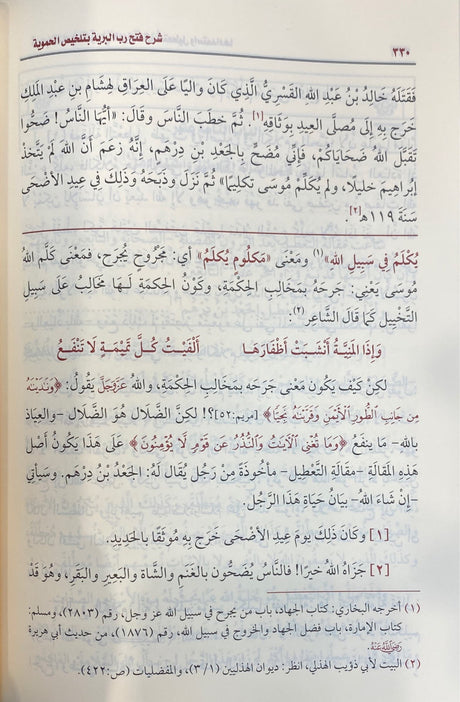 ٣٣٠ شرح فتح رب البرية بتلخيص الحموية
فَقَتَلَهُ خَالِدُ بْنُ عَبْدِ اللهِ القَسْرِيُّ الَّذِي كَانَ وَالِيًا عَلَى العِرَاقِ لِهِشَامِ بنِ عَبْدِ المَلِكِ
خَرَجَ بِهِ إِلَى مُصَلَّى العِيدِ بِوَثَاقِهِ[١]. ثُمَّ خَطَبَ النَّاسَ وَقَالَ: «أَيُّهَا النَّاسُ! ضَحُّوا
تَقَبَّلَ اللهُ ضَحَايَاكُمْ، فَإِنِّي مُضَحٍّ بِالجَعْدِ بْنِ دِرْهَمٍ، إِنَّهُ زَعَمَ أَنَّ اللهَ لَمْ يَتَّخِذْ
إِبْرَاهِيمَ خَلِيلًا، وَلَمْ يُكَلِّمْ مُوسَى تَكْلِيمًا» ثُمَّ نَزَلَ وَذَبَحَهُ وَذَلِكَ فِي عِيدِ الأَضْحَى
سَنَةَ ١١٩هـ[٢].
يُكْلَمُ فِي سَبِيلِ اللهِ»(١) وَمَعْنَى «مَكْلُومٍ يُكلَمُ» أي: مَجْرُوحٍ يُجرَح، فمَعْنَى كَلَّمَ اللهُ
مُوسَى يَعْنِي: جَرَحَهُ بِمَخَالِبِ الحِكْمَةِ، وكَوْنُ الحِكْمَةِ لَهَا مَخَالِبُ عَلَى سَبِيلِ
التَّخْيِيلِ كَمَا قَالَ الشَّاعِر(٢):
وَإِذَا المَنِيَّةُ أَنْشَبَتْ أَظْفَارَهَا أَلْفَيْتُ كُلَّ تَمِيْمَةٍ لَا تَنْفَعُ
لكِنْ كَيْفَ يكُون مَعْنَى جَرَحَه بمَخَالِبِ الحِكْمَةِ، واللهُ عَزَّوَجَلَّ يَقُولُ: ﴿وَنَٰدَيْنَٰهُ
مِن جَانِبِ ٱلطُّورِ ٱلْأَيْمَنِ وَقَرَّبْنَٰهُ نَجِيًّا﴾ [مريم:٥٢]؟! لكنَّ الضَّلال هُوَ الضَّلال -والعِيَاذ
بِالله- مَا ينفَعُ ﴿وَمَا تُغْنِي ٱلْآيَٰتُ وَٱلنُّذُرُ عَن قَوْمٍ لَّا يُؤْمِنُونَ﴾ عَلَى هَذَا يَكُونُ أَصْل
هَذِهِ المَقَالَةِ -مَقَالَةِ التَّعْطِيلِ- مَأخُوذَةً مِنْ رَجُلٍ يُقالُ لَهُ: الجَعْدُ بْنُ دِرْهَمٍ. وسَيَأْتِي
-إِنْ شَاءَ اللهُ- بَيَانُ حَيَاةِ هَذَا الرَّجُلِ.
[١] وكَانَ ذَلِكَ يومَ عِيدِ الأَضْحَى خَرَج بِهِ مُوثَقًا بالحَدِيدِ.
[٢] جَزَاهُ اللهُ خَيرًا! فالنَّاسُ يُضَحُّونَ بالغَنَمِ والشَّاة والبَعِيرِ والبَقَرِ، وهُو قَدْ
(١) أخرجه البخاري: كتاب الجهاد، باب من يجرح في سبيل الله عز وجل، رقم (٢٨٠٣)، ومسلم:
كتاب الإمارة، باب فضل الجهاد والخروج في سبيل الله، رقم (١٨٧٦)، من حديث أبي هريرة
رَضِيَ اللهُ عَنْهُ.
(٢) البيت لأبي ذؤيب الهذلي، انظر: ديوان الهذليين (١/ ٣)، والمفضليات (ص:٤٢٢).